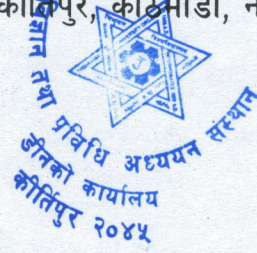 कीर्तिपुर, काठमाडौँ, न
ज्ञान तथा प्रविधि अध्ययन संस्थान
डीनको कार्यालय
कीर्तिपुर २०४५